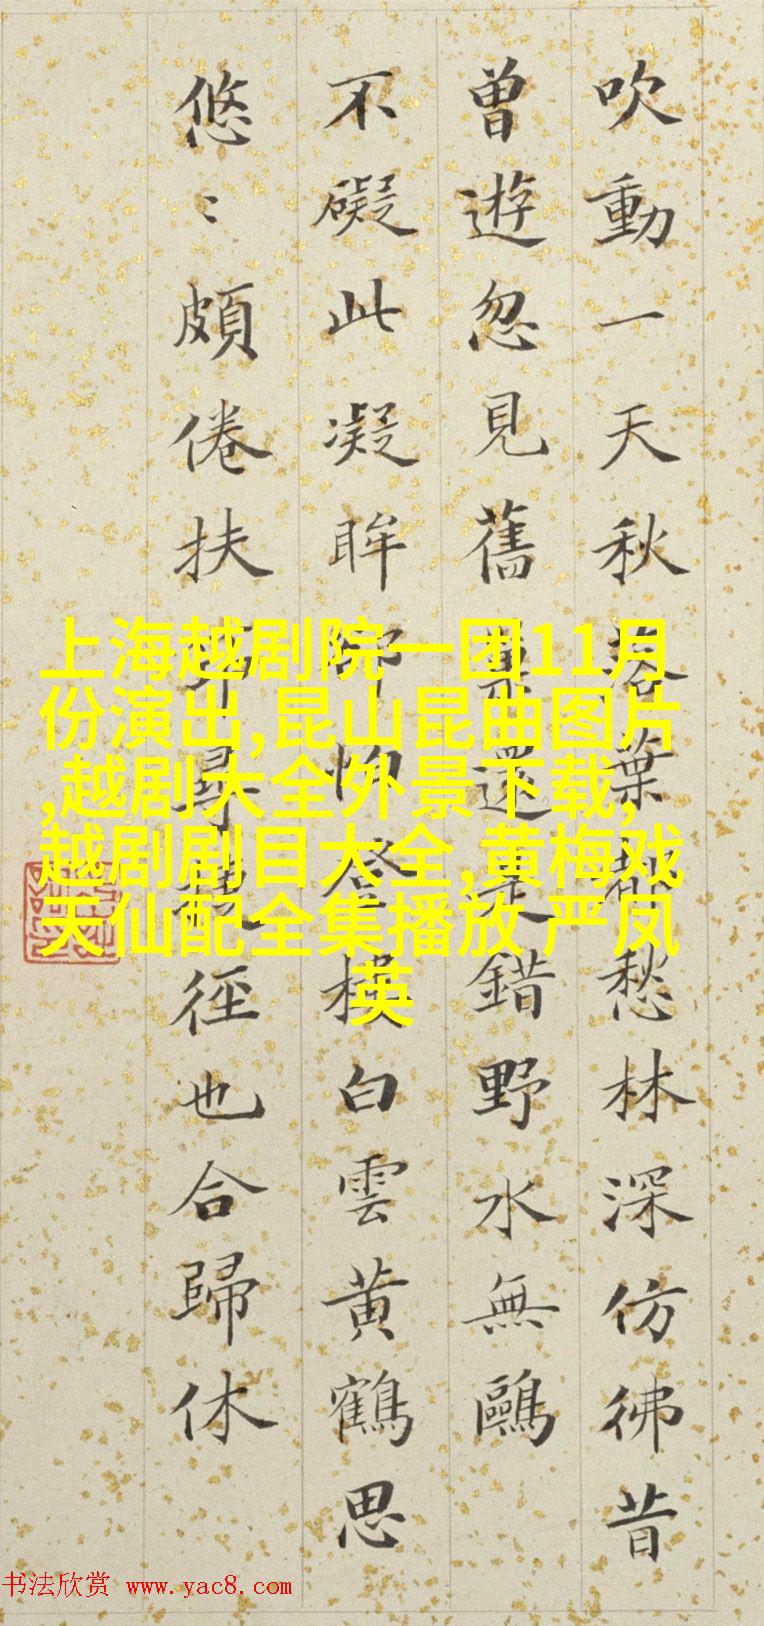 吹動一天秋落葉都愁林深仿彿昔
曾遊忽見舊巢還是錯野水無鷗
不礙此凝眸卻怕登樓白雲黃鶴思
悠〻頗倦扶筇尋徑也合歸休
上海越剧院一团11月
份演出,昆山昆曲图片
,越剧大全外景下载,
越剧剧目大全,黄梅戏
天仙配全集播放 严凤
英
书法欣赏 www.yac8.com